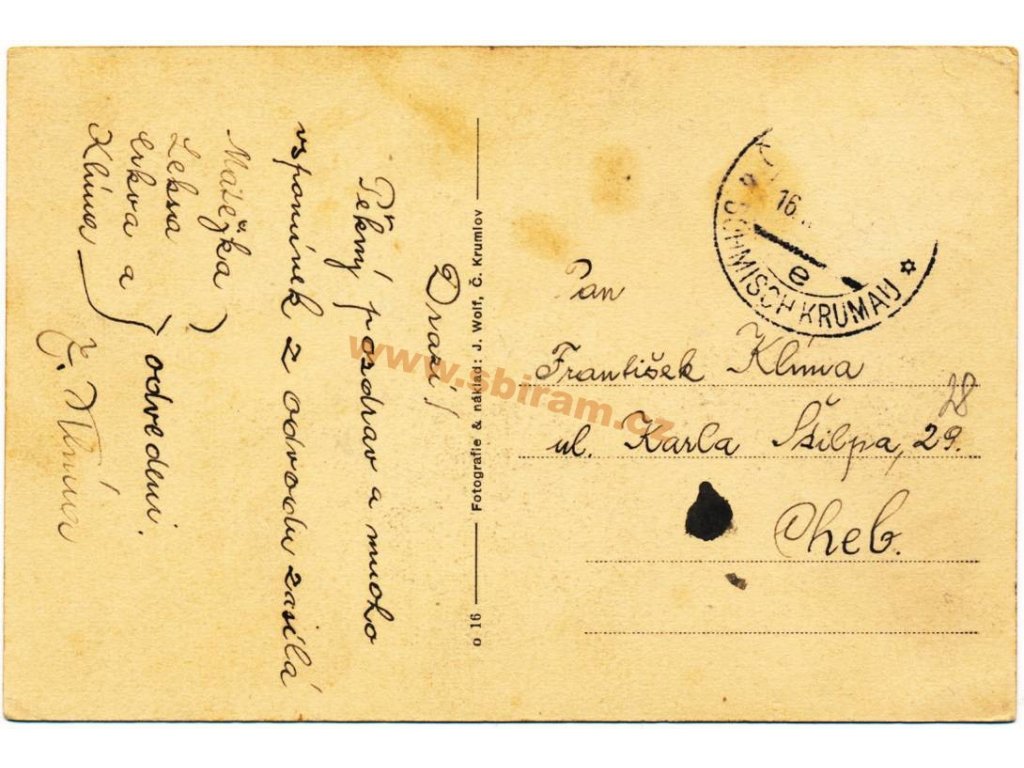 Drazí!
Pěkný pozdrav a mnoho
vzpomínek z odvodu zasílá
Matějka
Leksa
Klíma
odvedeni.
Klíma
Fotografie & náklad: J. Wolf, Č. Krumlov
o 16
16.
e
BÖHMISCH KRUMAU
Pan
František Klíma
28
ul. Karla 29.
Cheb.
www.sbiram.cz